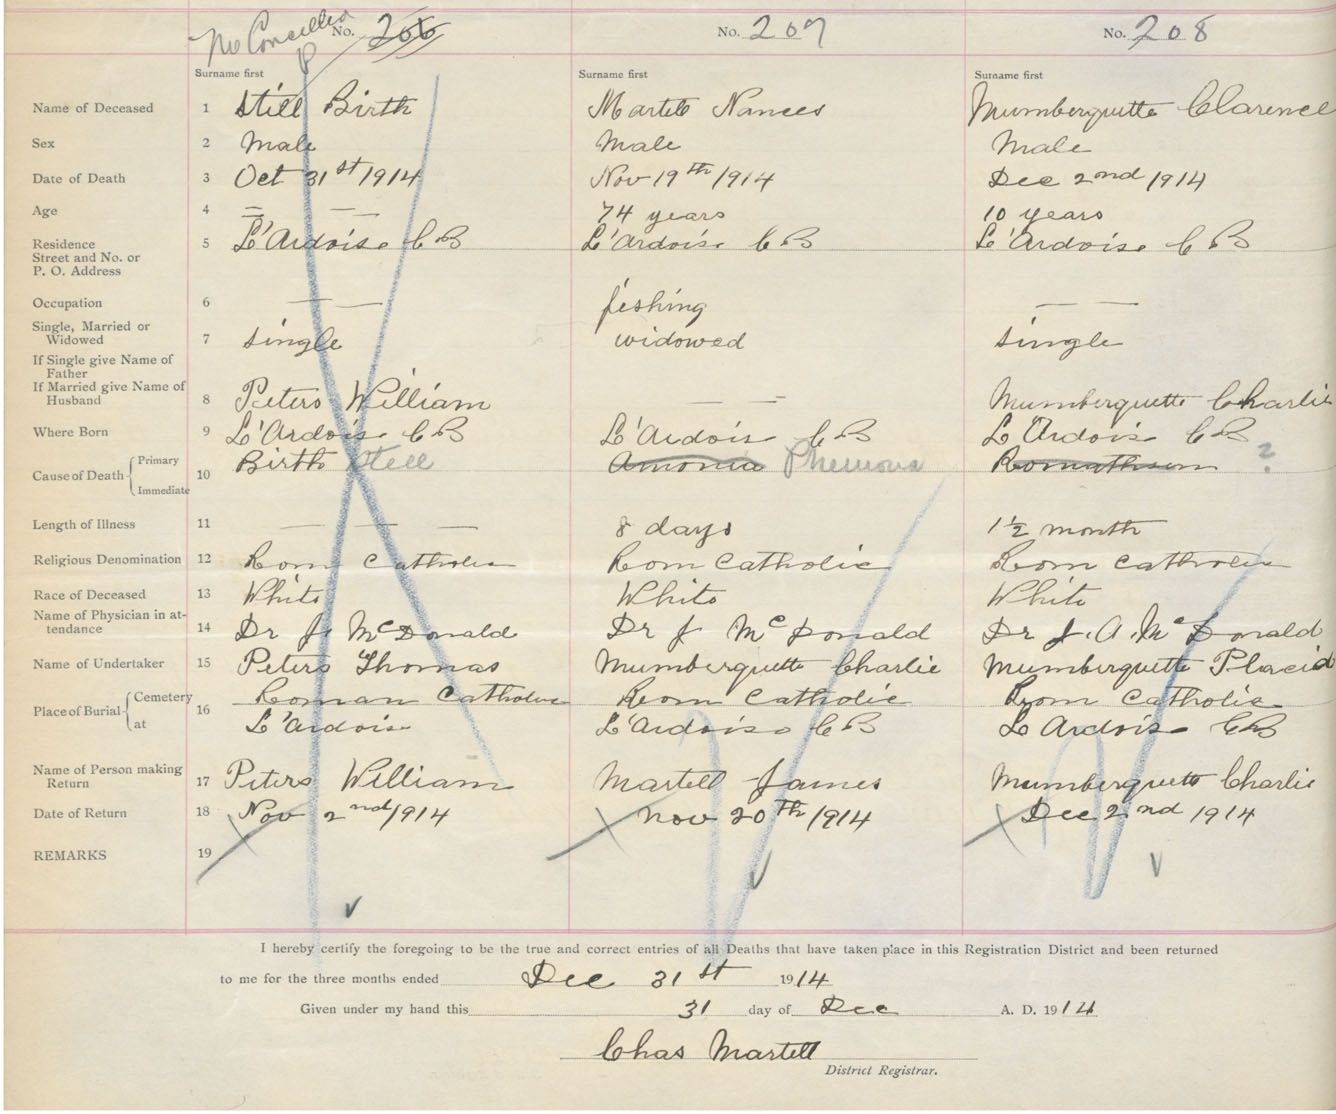 No Cancelled No. 206 No. 207 No. 208
Surname first Surname first Surname first
Name of Deceased 1 Still Birth Martell Nances Mumberquette Clarence
Sex 2 Male Male Male
Date of Death 3 Oct 31st/1914 Nov 19th/1914 Dec 2nd 1914
Age 4 — — 74 years 10 years
Residence 5 L'Ardoise C B L'Ardoise C B L'Ardoise C B
Street and No. or
P. O. Address
Occupation 6 — — fishing — —
Single, Married or
Widowed 7 single widowed single
If Single give Name of
Father
If Married give Name of
Husband 8 Peters William — — Mumberquette Charlie
Where Born 9 L'Ardois C B L'Ardois C B L Ardois C B
Cause of Death Primary 10 Birth Still Amonia Phenuona Romathism ?
Immediate
Length of Illness 11 — — — 8 days 1½ month
Religious Denomination 12 Rom Catholic Rom Catholic Rom Catholic
Race of Deceased 13 White White White
Name of Physician in at-
tendance 14 Dr J. McDonald Dr J McDonald Dr J. A. McDonald
Name of Undertaker 15 Peters Thomas Mumberquette Charlie Mumberquette Placid
Place of Burial Cemetery 16 Roman Catholic Rom Catholic Rom Catholic
at L'ardois L'Ardoise C B L Ardois C B
Name of Person making
Return 17 Peters William Martell James Mumberquette Charlie
Date of Return 18 Nov 2nd/1914 Nov 20th/1914 Dec 2nd 1914
REMARKS 19
I hereby certify the foregoing to be the true and correct entries of all Deaths that have taken place in this Registration District and been returned
to me for the three months ended Dec 31st 1914
Given under my hand this 31 day of Dec A. D. 1914
Chas Martell
District Registrar.